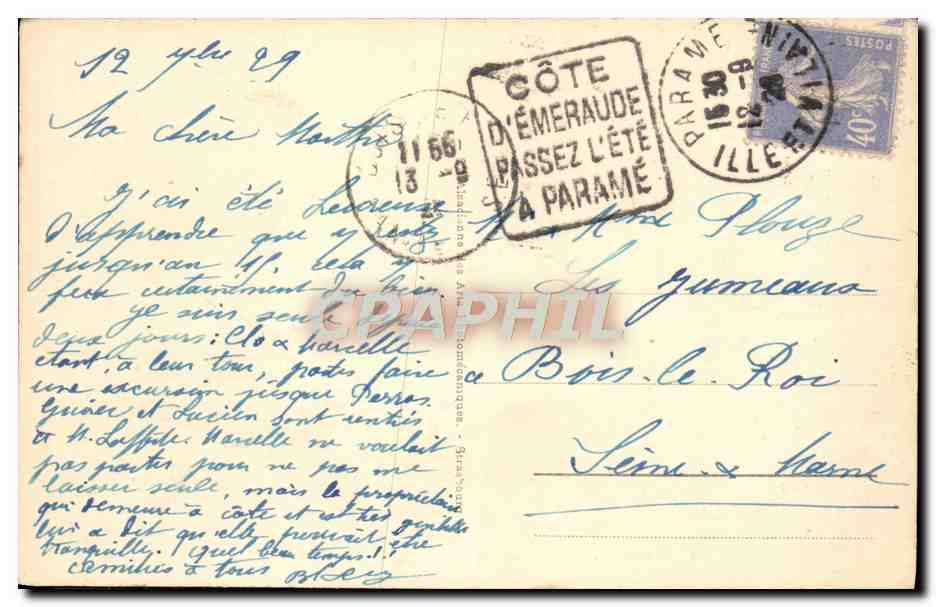 12 7bre 29
Ma chère Marthe
J'ai été heureuse
d'apprendre que y
jusqu'au 15. cela
fera certainement du bien.
Je suis seule
deux jours: Clo & Marcelle
étant, à leur tour, parties faire
une excursion jusque Perros.
et Lucien sont rentrés
à M. Laffitte. Marcelle ne voulait
pas partir pour ne pas me
laisser seule, mais la propriétaire
qui demeure à côté et est très gentille
lui a dit qu'elle pouvait être
tranquille. Quel beau temps!!
à tous
CÔTE
D'ÉMERAUDE
PASSEZ L'ÉTÉ
A PARAMÉ
PARAMÉ
ILLE-ET-VILAINE
15 30
12 -9
POSTES
40c
13
M & Mme Plouze
Les Jumeaux
à Bois-le-Roi
Seine & Marne
Strasbourg
CPAPHIL